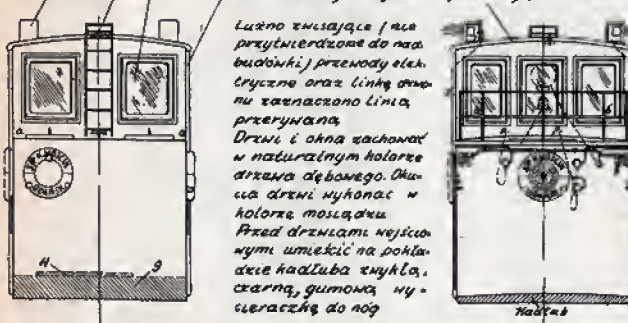 Luźno zwisające (nie
przytwierdzone do nad
budówki) przewody elek
tryczne oraz linkę dzwo-
nu zaznaczono linią
przerywaną
Drzwi i okna zachować
w naturalnym kolorze
drzewa dębowego. Oku-
cia drzwi wykonać w
kolorze mosiądzu
Przed drzwiami wejścio-
wymi umieścić na pokła-
dzie kadłuba zwykłą,
czarną, gumową wy-
cieraczkę do nóg
a
b
b
a
H
9
Kadłub